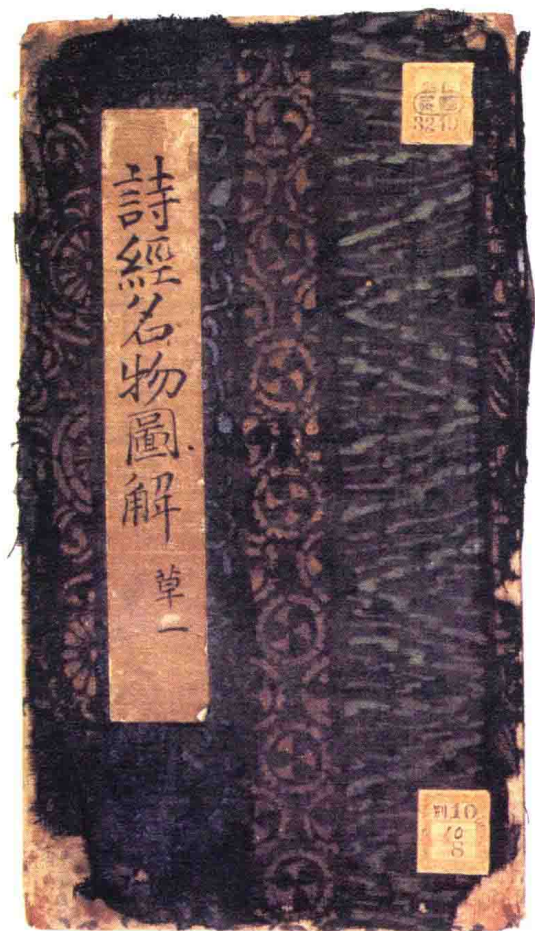 詩經名物圖解
草一
3249
別10
10
8